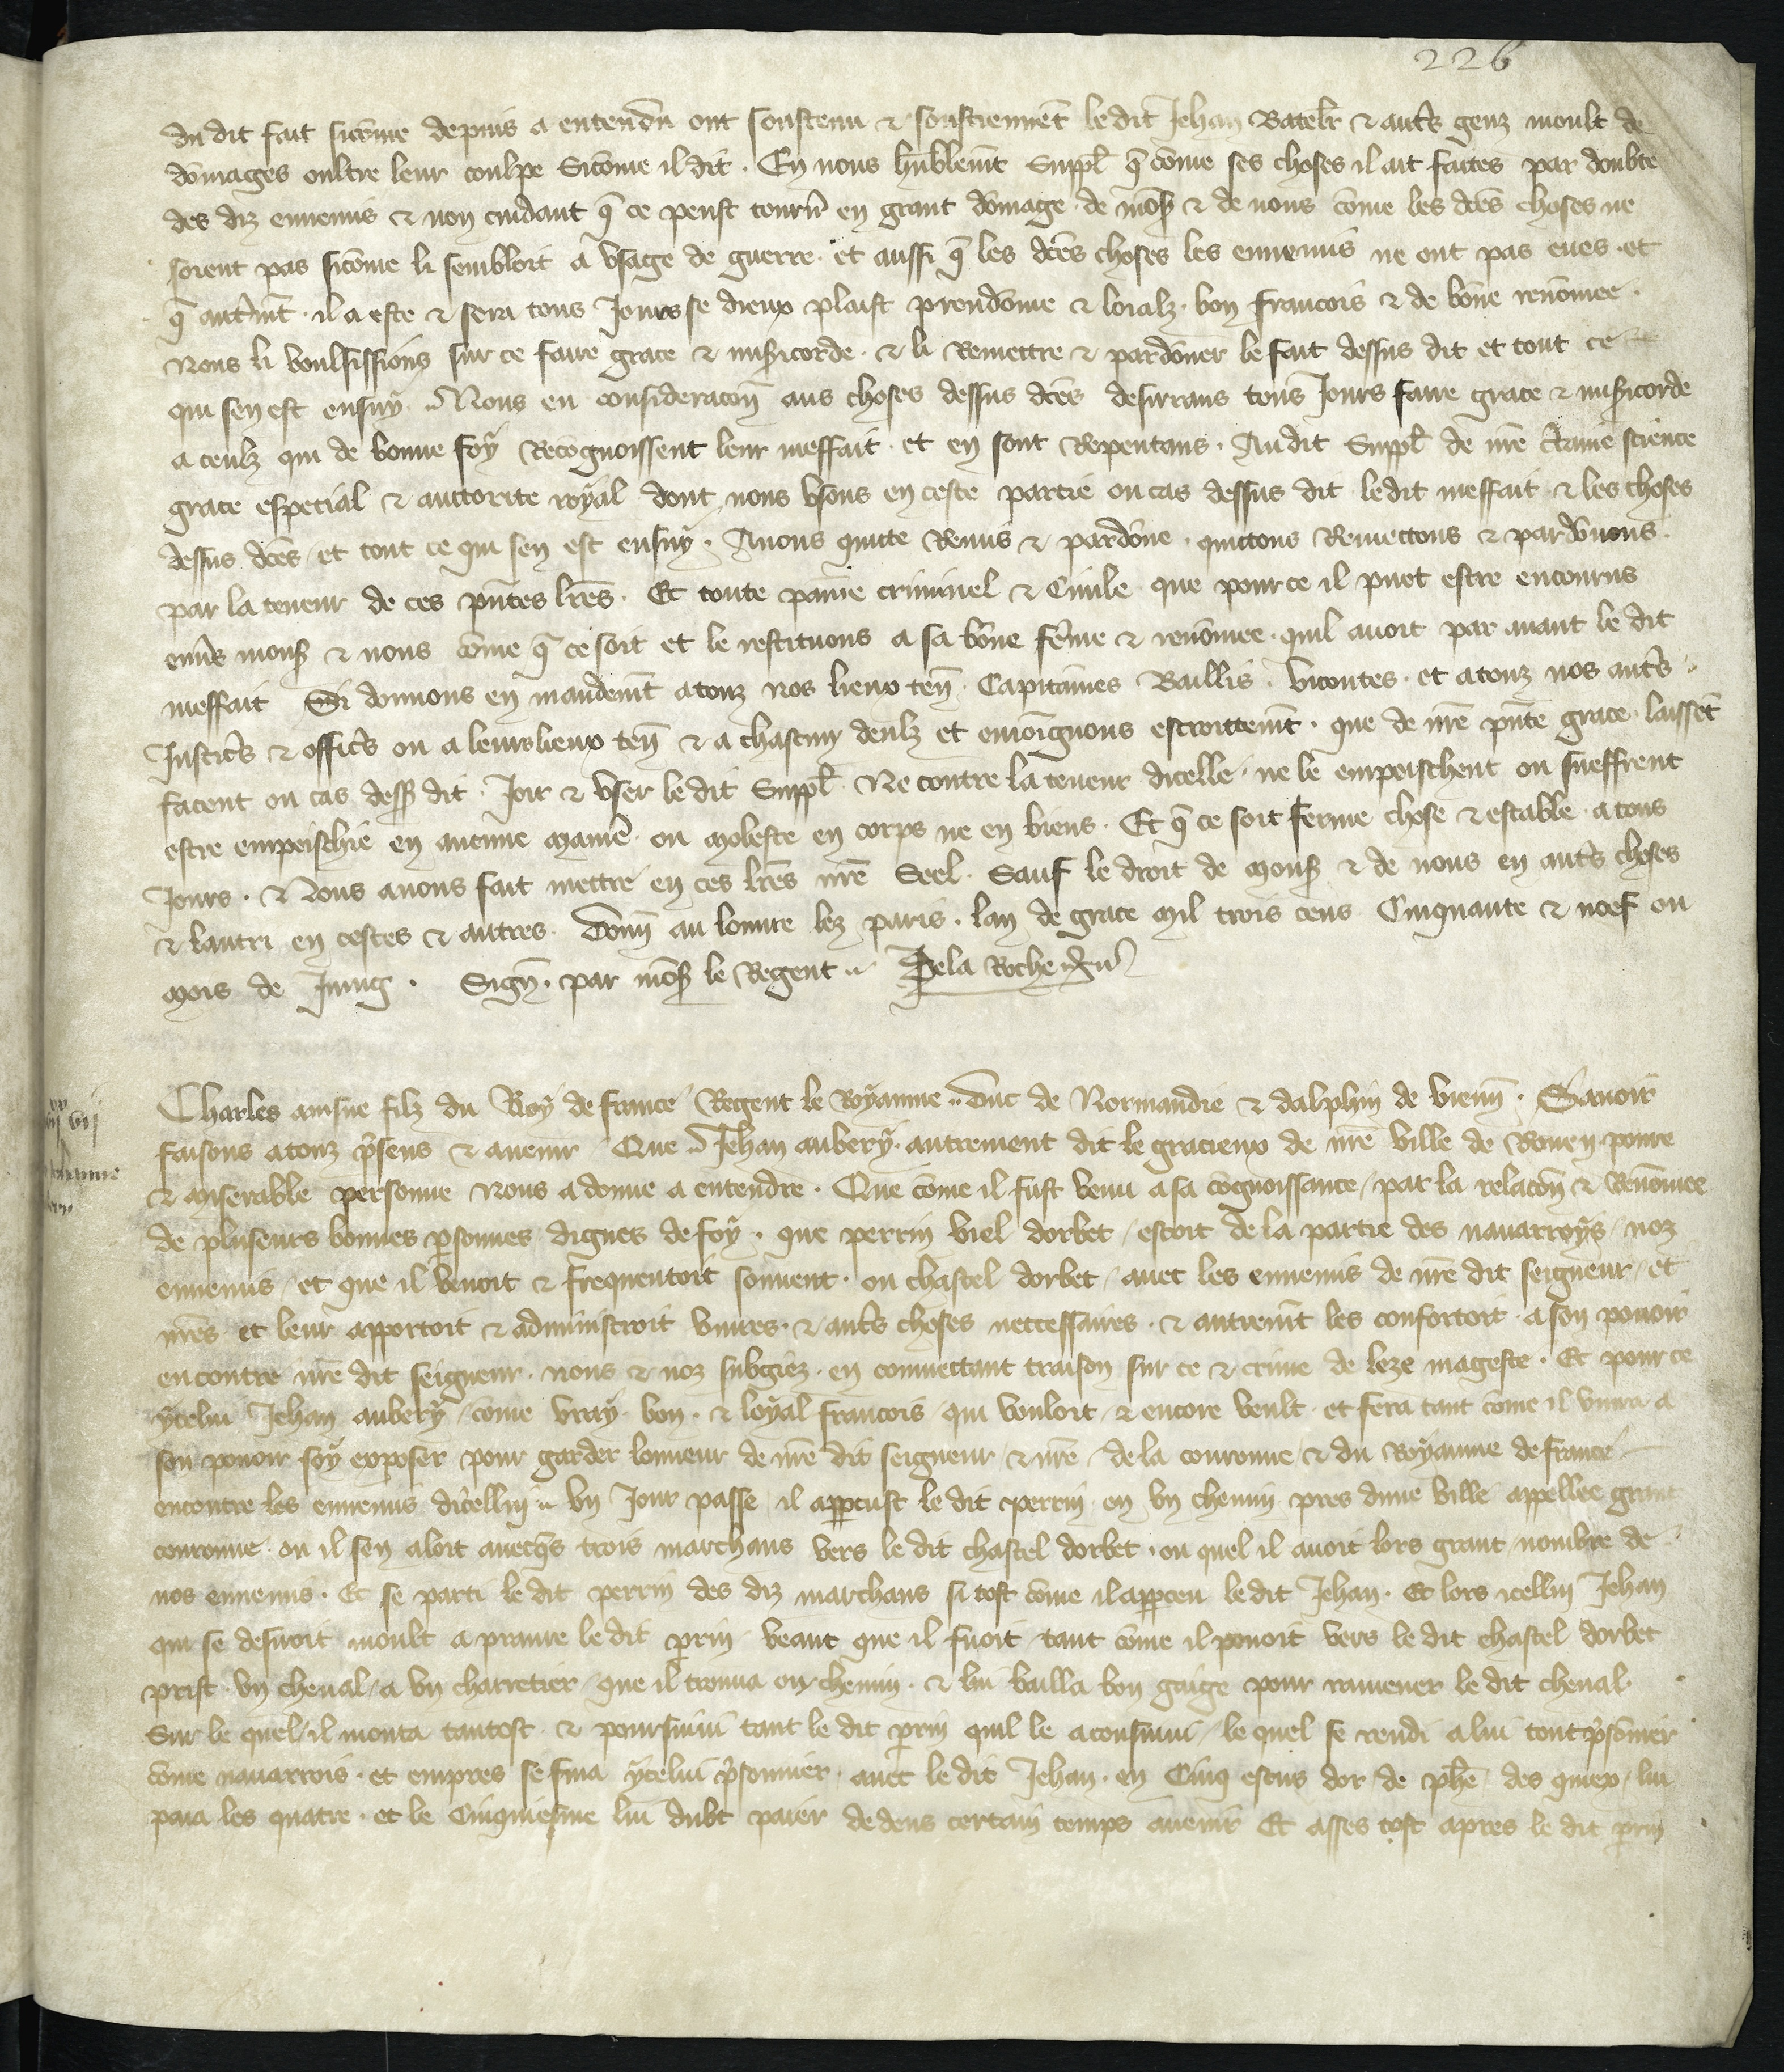 226
du dit fait sicome depuis a entendu ont soustenu & soustiennet le dit Jehan Batelr & autrs genz moult de
domages oultre leur coulpe Sicome il dit. En nous humblemt Suppl que come ses choses il ait faites par doubte
des diz ennemis & non cuidant q ce peust tourn en grant domage de mons & de nous come les dces choses ne
soient pas sicome li sembloit a usage de guerre. et aussi q les dces choses les ennemis ne ont pas eues. et
q autremt. il a este & sera tous Jours se dieux plaist preudome & loialz. bon francois & de bone renomee.
Nous li voulsissions sur ce faire grace & misicorde. & li Remettre & pardoner le fait dessus dit et tout ce
qui sen est ensuy. Nous eu consideracon aus choses dessus dces desirrans tous Jours faire grace & misicorde
a ceulz qui de bonne foy Recognoissent leur meffait. et en sont Repentans. Au dit Suppl de nre certaine science
grace especial & auctorite royal dont nous usons en ceste partie ou cas dessus dit ledit meffait & les choses
dessus dces et tout ce qui sen est ensuy. Avons quitte Remis & pardone. quittons Remettons & pardonons.
par la teneur de ces pntes lres. Et toute paine criminel & Civile que pour ce il puet estre encourus
envs mons & nous come q ce soit et le restituons a sa bone feme & renomee. quil avoit par avant le dit
meffait Si donnons en mandemt a touz nos lieux ten. Capitaines Baillis. vicontes. et a touz nos autrs
Justicrs & officrs ou a leurs lieux ten & a chascun deulz et enioignons estroittemt. que de nre pnte grace. laisset
facent ou cas dess dit. Joir & user le dit Suppl. Ne contre la teneur dicelle. ne le empeischent ou sueffrent
estre empeischie en aucune manie ou moleste en corps ne en biens. Et q ce soit ferme chose & estable a tous
Jours. Nous avons fait mettre en ces lres nre Seel. Sauf le droit de mons & de nous en autrs choses
& lautri en cestes & autres. Donn au louvre lez paris. lan de grace mil trois cens Cinquante & noef ou
mois de Juing. Sign. par mons le Regent. De la Roche
Charles ainsne filz du Roy de france Regent le Royaume. Duc de Normandie & dalphin de vienn. Savoir
faisons a touz psens & avenir Que Jehan aubery. autrement dit le gracieux de nre ville de Rouen povre
& miserable personne Nous a donne a entendre. Que come il fust venu a sa cognoissance par la relacon & Renomee
de pluseurs bonnes psonnes dignes de foy. que perrin viel dorbet estoit de la partie des navarroys noz
ennemis et que il venoit & frequentoit souvent. ou chastel dorbet avec les ennemis de nre dit seigneur et
nres et leur apportoit & administroit vivres. & autrs choses neccessaires. & autremt les confortoit a son povoir
encontre nre dit seigneur. nous & noz subgiez. en commettant traison sur ce & crime de leze mageste. Et pour ce
ycelui Jehan aubery come vray bon. & loyal francois qui vouloit & encore veult et fera tant come il vivra a
son povoir soy exposer pour garder lonneur de nre dit seigneur & nre de la couronne & du Royaume de france
encontre les ennemis dicellui un Jour passe il appcust le dit perrin en un chemin pres dune ville appellee grant
couronne ou il sen aloit avecqs trois marchans vers le dit chastel dorbet. ou quel il avoit lors grant nombre de
nos ennemis. Et se parti le dit perrin des diz marchans si tost come il appceu le dit Jehan. Et lors icellui Jehan
qui se desiroit moult a prenre le dit prin veant que il fuoit tant come il povoit vers le dit chastel dorbet
prist un cheval a un charretier que il trouva ou chemin. & lui bailla bon gaige pour ramener le dit cheval.
Sur le quel il monta tantost. & poursuivi tant le dit prin quil le aconsuivi le quel se rendi a lui tout psonnier
come navarrois. et empres se fina ycelui psonnier. avec le dit Jehan. en Cinq escus dor de phe des quiex lui
paia les quatre. et le Cinquiesme lui dubt paier dedens certain temps avenir Et asses tost apres le dit prin